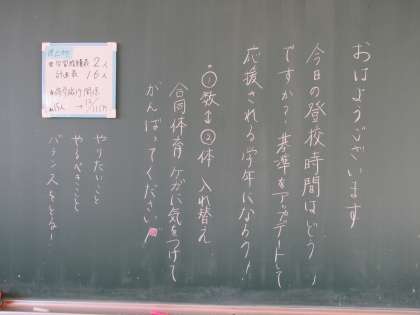 おはようございます
今日の登校時間はどう
ですか? 基準をアップデートして
応援される学年になろう!
・①数ま ②体 入れ替え
合同体育 ケガに気をつけて
がんばってください!
やりたいこと
やるべきことと
バランスをとな!
2人
計画表 16人
15人 →